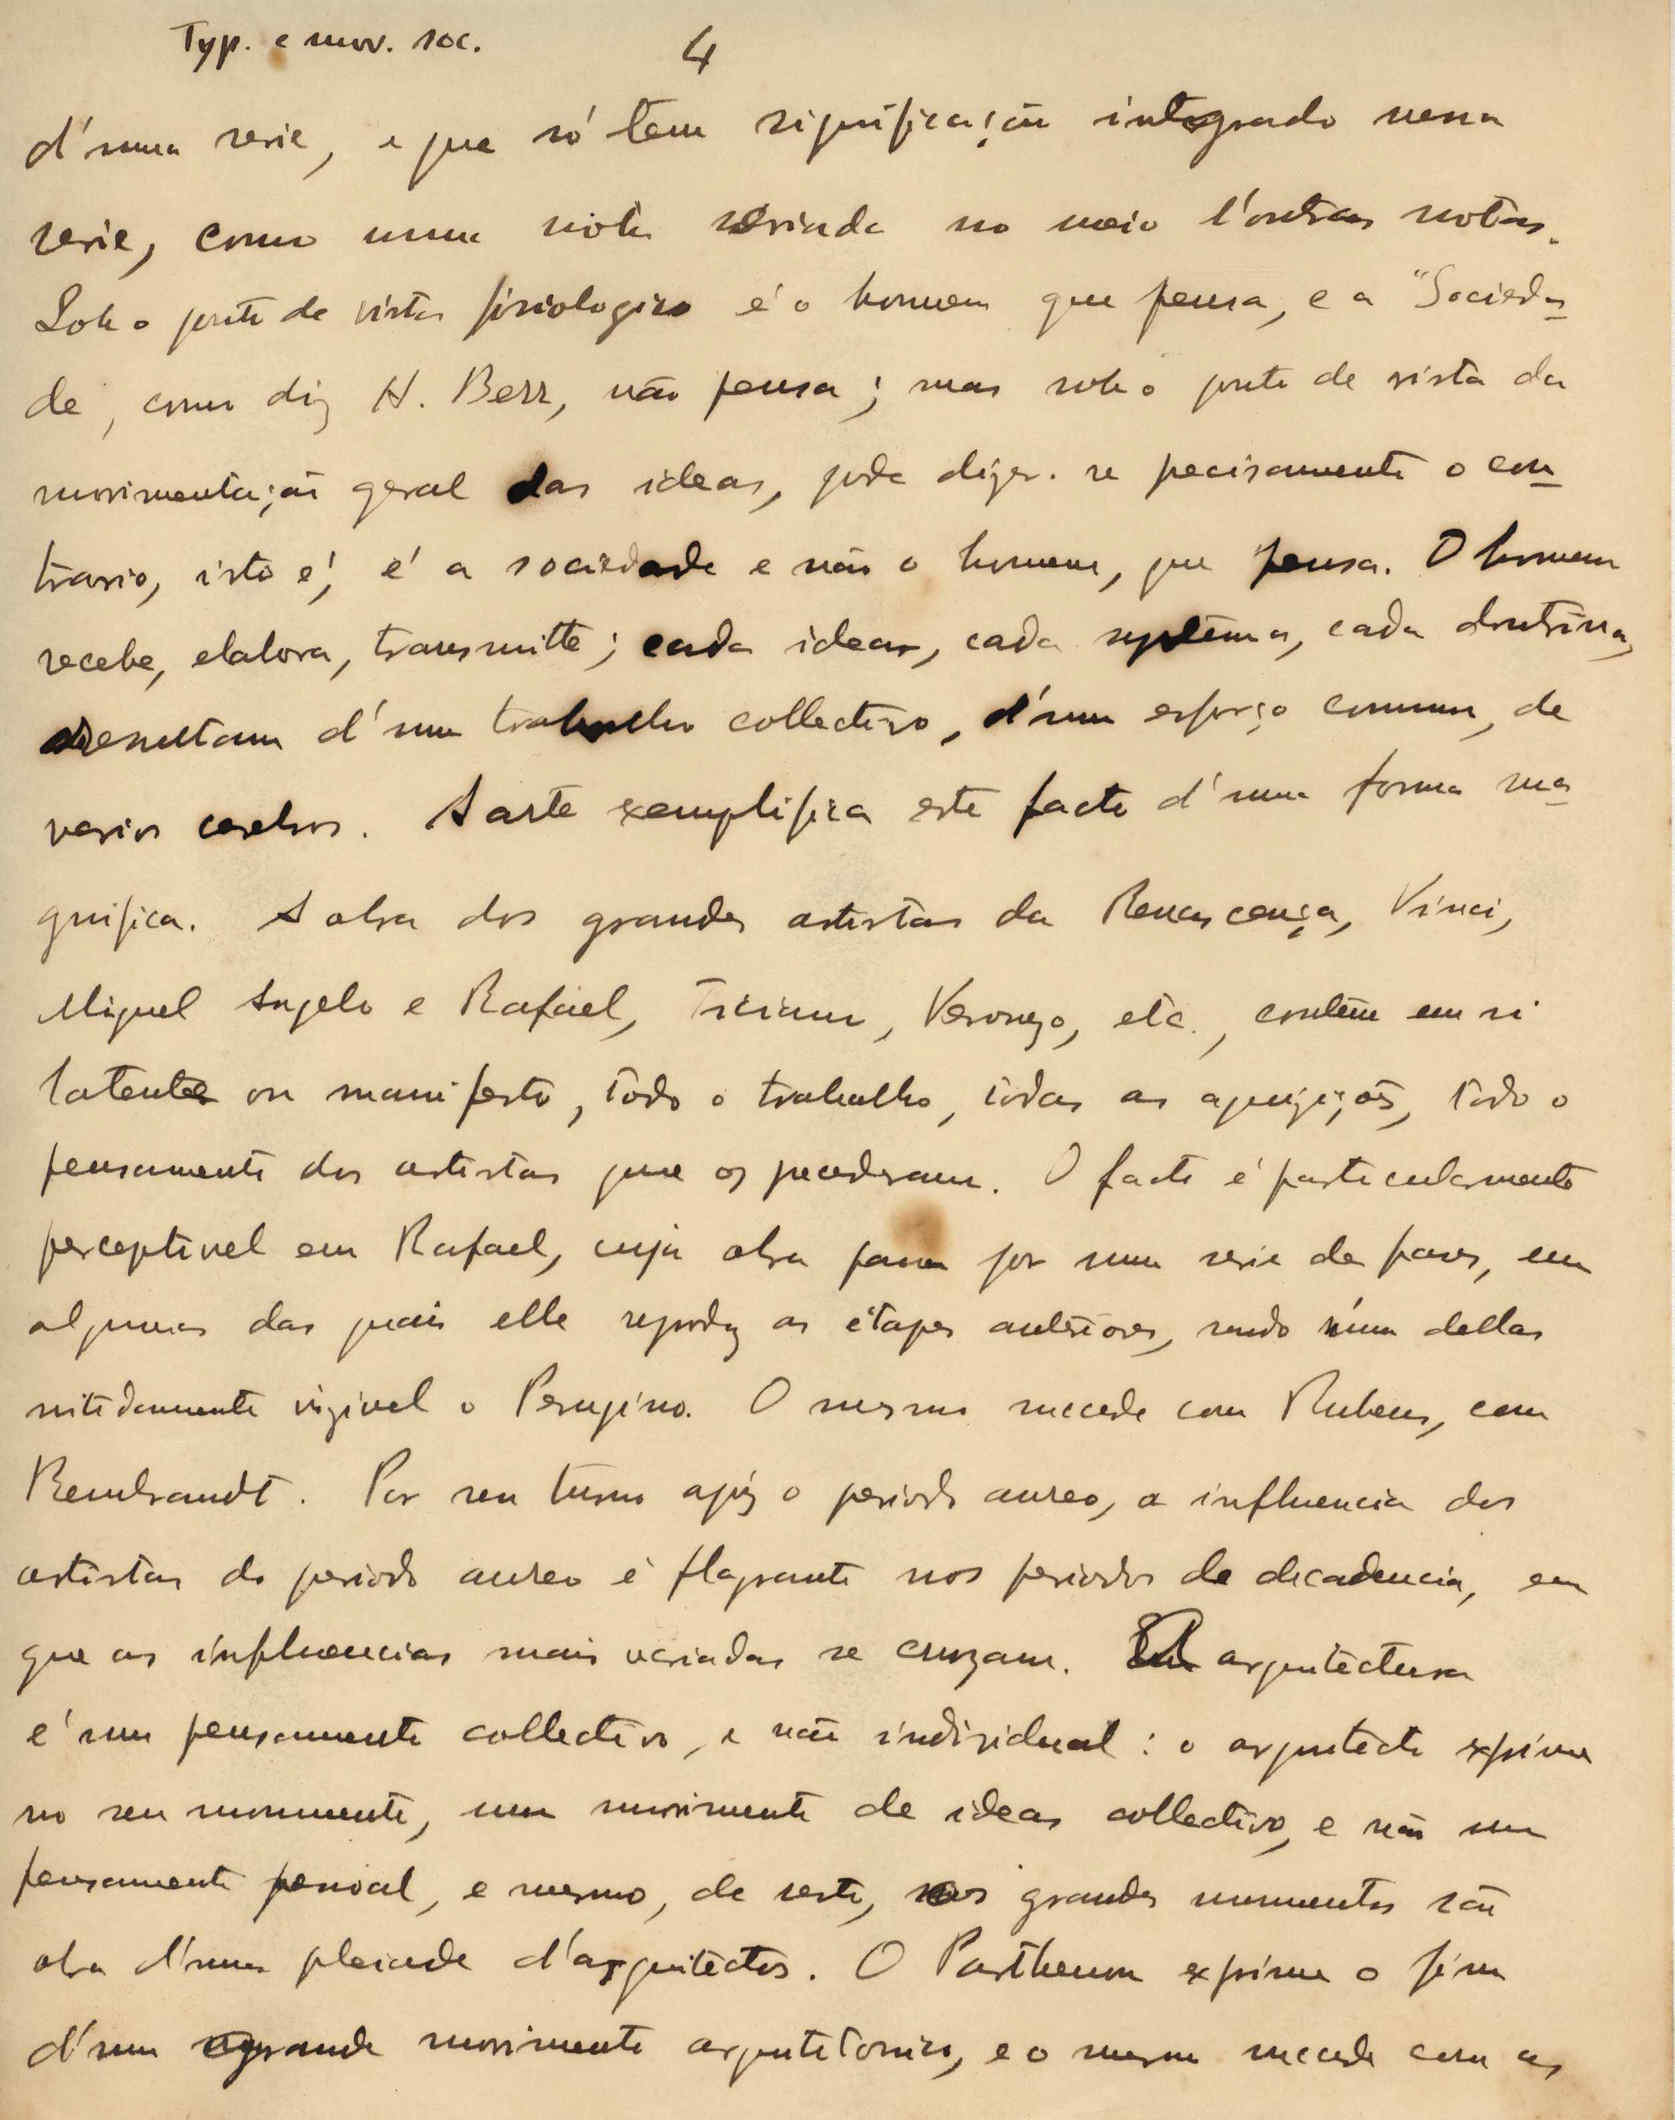 Typ. e mov. soc. 4
d'uma serie, e que só tem significação integrado nessa
serie, como uma nota seriada no meio d'outras notas.
Sob o ponto de vista fisiologico é o homem que pensa, e a "Socieda-
de, como diz H. Berr, não pensa; mas sob o ponto de vista da
movimentação geral das ideas, pode dizer-se precisamente o con-
trario, isto é, é a sociedade e não o homem, que pensa. O homem
recebe, elabora, transmitte; cada idea, cada systema, cada doutrina,
resultam d'um trabalho collectivo, d'um esforço commum, de
varios cerebros. A arte exemplifica este facto d'uma forma ma-
gnifica. A obra dos grandes artistas da Renascença, Vinci,
Miguel Angelo e Rafael, Ticiano, Veronezo, etc., contém em si
latente ou manifesto, todo o trabalho, todas as aquizições, todo o
pensamento dos artistas que os precederam. O facto é particularmente
perceptivel em Rafael, cuja obra passa por uma serie de fases, em
algumas das quais elle reproduz as étapes anteriores, sendo n'uma dellas
nitidamente vizivel o Perugino. O mesmo succede com Rubens, com
Rembrandt. Por seu turno apoz o periodo aureo, a influencia dos
artistas do periodo aureo é flagrante nos periodos de decadencia, em
que as influencias mais variadas se cruzam. A arquitectura
é um pensamento collectivo, e não individual: o arquitecto exprime
no seu monumento, um movimento de ideas collectivo, e não um
pensamento pessoal, e mesmo, de resto, os grandes monumentos são
obra d'uma pleiade d'arquitectos. O Parthenon exprime o fim
d'um grande movimento arquitetonico, e o mesmo succede com as